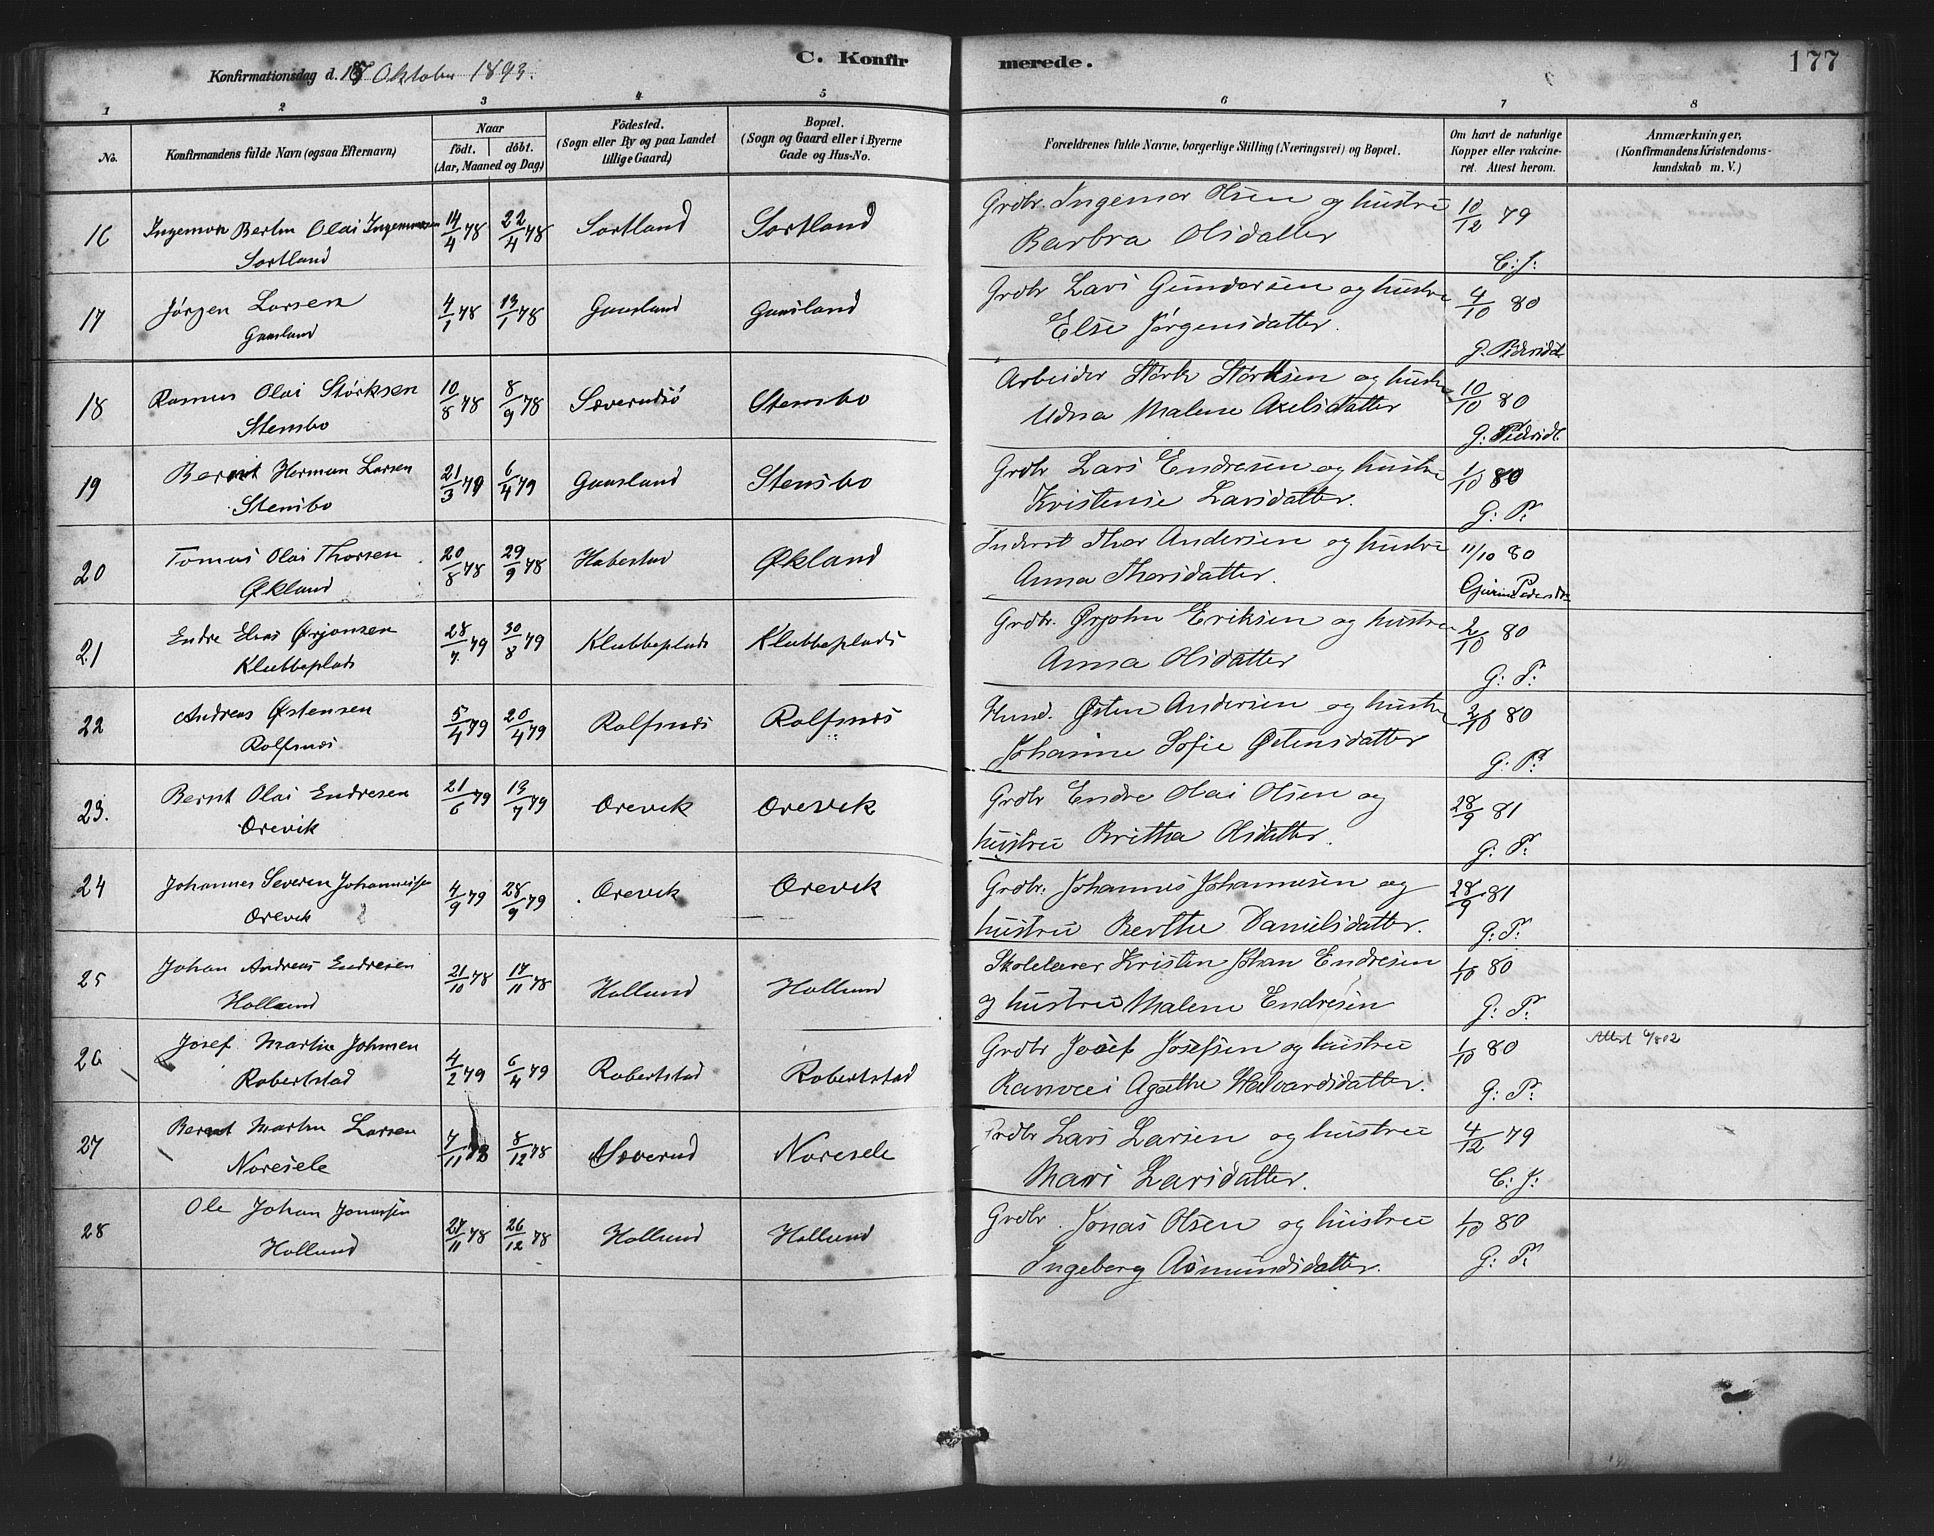 Konfirmationsdag d. 15 Oktober 1893.
C. Konfirmerede.
177
1 2 3 4 5 6 7 8
No.
Konfirmandens fulde Navn (ogsaa Efternavn)
Naar
födt. döbt.
(Aar, Maaned og Dag)
Födested.
(Sogn eller By og paa Landet
tillige Gaard)
Bopæl.
(Sogn og Gaard eller i Byerne
Gade og Hus-No.
Forældrenes fulde Navne, borgerlige Stilling (Næringsvei) og Bopæl.
Om havt de naturlige
Kopper eller vakcine-
ret. Attest herom.
Anmærkninger,
(Konfirmandens Kristendoms-
kundskab m. V.)
16 Ingemon Bertin Olai Ingemonsen 14/4 78 22/4 78 Sortland Sortland Grdbr. Ingemor Olsen og hustru 10/12 79
Sortland Barbra Olsdatter C: J:
17 Jørgen Larsen 4/1 78 13/1 78 Gaasland Gaasland Grdbr Lars Gundersen og hustru 4/10 80
Gaasland Else Jørgensdatter. G. Pedersdat.
18 Rasmus Olai Størksen 10/8 78 8/9 78 Sæverudsö Stensbo Arbeider Størk Størksen og hustru 10/10 80
Stensbo Udna Malene Axelsdatter G: Pedersdt.
19 Bernt Herman Larsen 21/3 79 6/4 79 Gaasland Stensbo Grdbr Lars Endresen og hustru 1/10 80
Stensbo Kristense Larsdatter. G: P:
20 Tomas Olai Thorsen 20/8 78 29/9 78 Habestad Økland Inderst Thor Andersen og hustru 11/10 80
Økland Anna Thorsdatter. Gjurin Pedersdtr
21 Endre Elias Ørjansen 28/7 79 30/8 79 Klubbeplads Klubbeplads Grdbr. Ørjohn Eriksen og hustru 2/10 80
Klubbeplads Anna Olsdatter G: P:
22 Andreas Østensen 5/4 79 20/4 79 Rolfsnæs Rolfsnæs Husmd. Østen Andersen og hustru 2/10 80
Rolfsnæs Johanne Sofie Østensdatter G: P:
23. Bernt Olai Endresen 21/6 79 13/7 79 Orevik Orevik Grdbr Endre Olai Olsen og 28/9 81
Orevik hustru Britha Olsdatter. G: P:
24 Johannes Severin Johannessen 4/9 79 28/9 79 Orevik Orevik Grdbr. Johannes Johannesen og 28/9 81
Orevik hustru Berthe Danielsdatter. G: P:
25 Johan Andreas Endresen 21/10 78 17/11 78 Hollund Hollund Skolelærer Kristen Johan Endresen 1/10 80
Hollund og hustru Malene Endresen G: P:
26 Josef Martin Johnsen 4/2 79 6/4 79 Robertstad Robertstad Grdbr Josef Josefsen og hustru 1/10 80 Attest 6/8 02
Robertstad Ranvei Agathe Halvardsdatter. G: P:
27 Bernt Martin Larsen 7/11 78 8/12 78 Sæverud Noresele Grdbr Lars Larsen og hustru 4/12 79
Noresele Mari Larsdatter. C: J:
28 Ole Johan Jonassen 27/11 78 26/12 78 Hollund Hollund Grdbr. Jonas Olsen og hustru 1/10 80
Hollund Ingeberg Asmundsdatter. G: P: